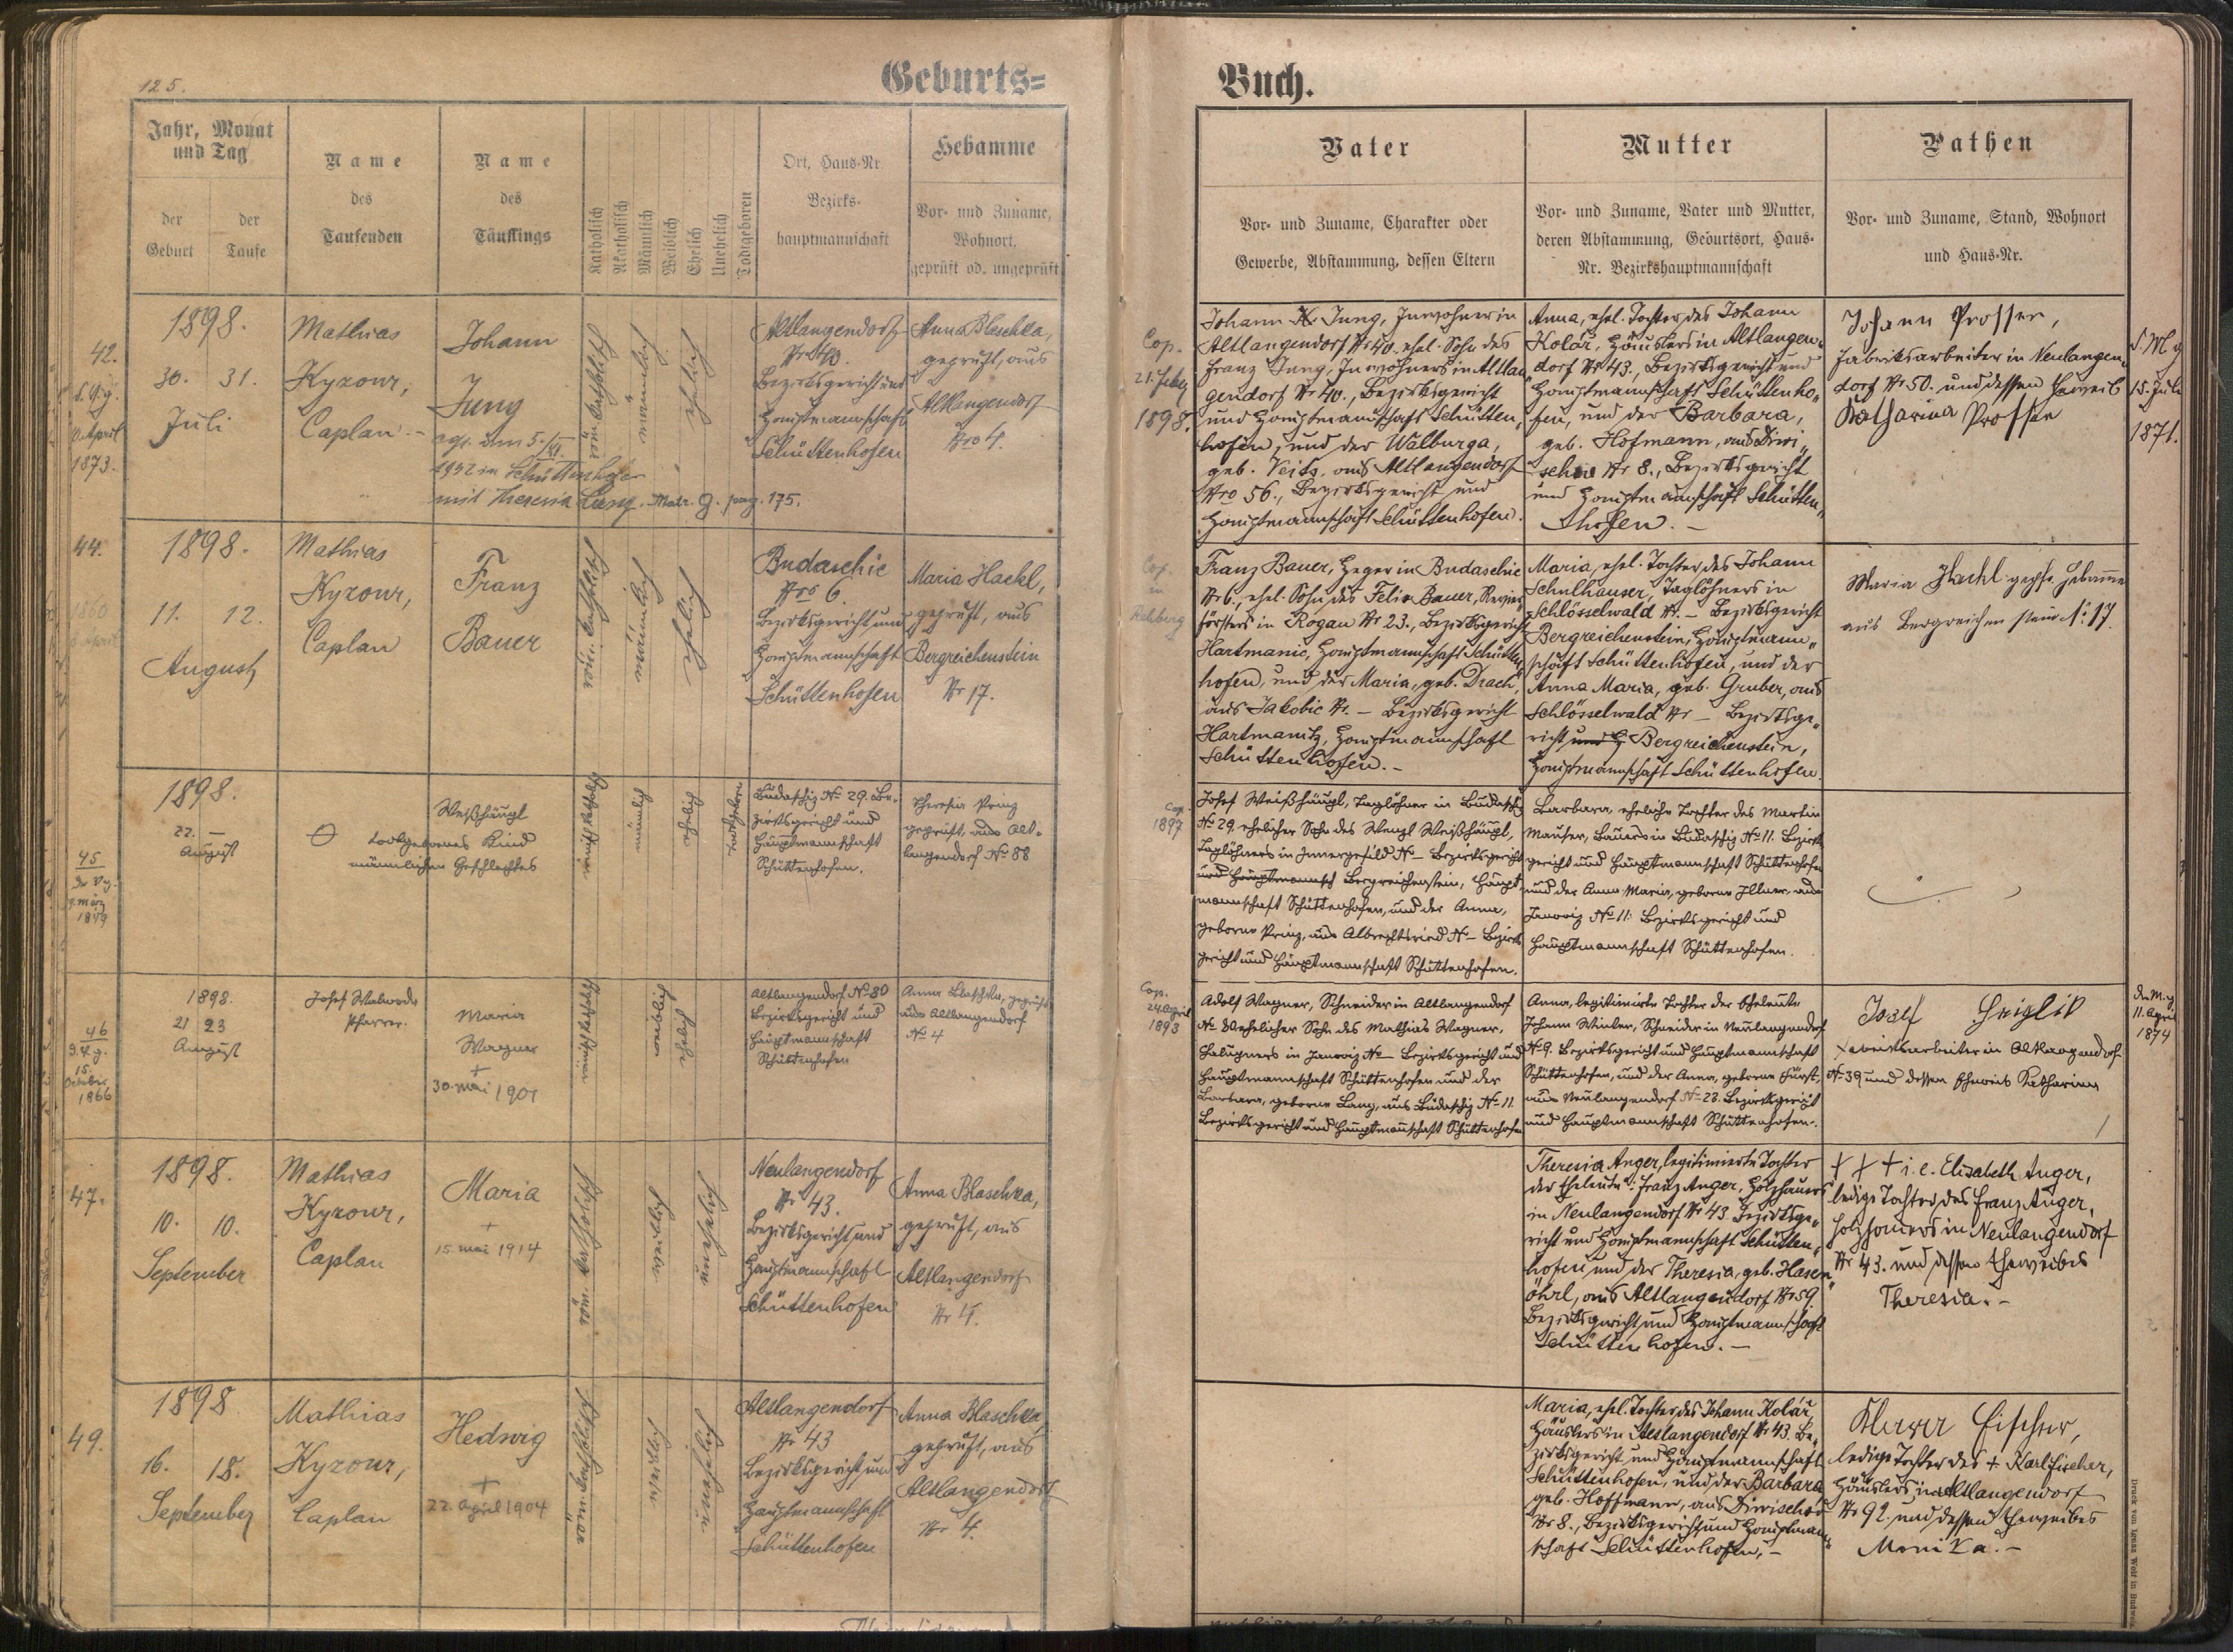 125.
Geburts=
Buch.
Jahr, Monat
und Tag
der
Geburt
der
Taufe
Name
des
Taufenden
Name
des
Täuflings
Katholisch
Akatholisch
Männlich
Weiblich
Ehelich
Unehelich
Todtgeboren
Ort, Haus-Nr
Bezirks-
hauptmannschaft
Hebamme
Vor- und Zuname,
Wohnort,
geprüft od. ungeprüft
Vater
Vor- und Zuname, Charakter oder
Gewerbe, Abstammung, dessen Eltern
Mutter
Vor- und Zuname, Vater und Mutter,
deren Abstammung, Geburtsort, Haus-
Nr. Bezirkshauptmannschaft
Pathen
Vor- und Zuname, Stand, Wohnort
und Haus-Nr.
42.
April
1873.
1898.
30. 31.
Juli
Mathias
Kyzour,
Caplan.-
Johann
Jung
1932 in Schüttenhofen
mit Theresia Lang. Matr. g. pag. 175.
röm. katholisch
männlich
ehelich
Altlangendorf
Nr 40.
Bezirksgericht und
Hauptmannschaft
Schüttenhofen
Anna Blaschka,
geprüft, aus
Altlangendorf
Nro 4.
Cop.
21. Feber
1898.
Johann N. Jung, Inwohner in
Altlangendorf Nr 40. ehel. Sohn des
Franz Jung, Inwohners in Altlan„
gendorf Nr 40., Bezirksgericht
und Hauptmannschaft Schütten„
hofen, und der Walburga,
geb. Veits. aus Altlangendorf
Nro 56., Bezirksgericht und
Hauptmannschaft Schüttenhofen.
Anna, ehel. Tochter des Johann
Kolář, Häuslers in Altlangen„
dorf Nr 43, Bezirksgericht und
Hauptmannschaft Schüttenho„
fen, und der Barbara,
geb. Hofmann, aus Diwi„
schau Nr 8., Bezirksgericht
und Hauptmannschaft Schütten„
hofen.-
Johann Prosser,
Fabriksarbeiter in Neulangen„
dorf Nr 50. und dessen Eheweib
Katharina Prosser
15. Juli
1871.
44.
1860
April
1898.
11. 12.
August
Mathias
Kyzour,
Caplan
Franz
Bauer
röm. katholisch
männlich
ehelich
Budaschic
Nro 6.
Bezirksgericht und
Hauptmannschaft
Schüttenhofen
Maria Hackl,
geprüft, aus
Bergreichenstein
Nr 17.
Cop.
in
Rehberg
Franz Bauer, Heger in Budaschic
Nr 6., ehel. Sohn des Felix Bauer, Revier„
försters in Rogau Nr 23., Bezirksgericht
Hartmanic, Hauptmannschaft Schütten„
hofen, und der Maria, geb. Drach,
aus Jakobic Nr. - Bezirksgericht
Hartmanitz, Hauptmannschaft
Schüttenhofen.-
Maria, ehel. Tochter des Johann
Schulhauser, Taglöhners in
Schlösselwald Nr. - Bezirksgericht
Bergreichenstein, Hauptmann„
schaft Schüttenhofen, und der
Anna Maria, geb. Gruber, aus
Schlösselwald Nr - Bezirksge„
richt und H Bergreichenstein,
Hauptmannschaft Schüttenhofen.
Maria Hackl geprf. Hebamme
aus Bergreichenstein N: 17.
45
9. März
1879
1898.
22. -
August
Weißhäupl
todtgeborenes Kind
männlichen Geschlechtes
römisch katholisch
männlich
ehelich
todtgeboren
Budaschiz No 29. Be-
zirksgericht und
Hauptmannschaft
Schüttenhofen.
Theresia Prinz
geprüft, aus Alt-
langendorf No 88
Cop.
1897
Josef Weißhäupl, Taglöhner in Budaschiz
No 29. ehelicher Sohn des Wenzl Weißhäupl,
Taglöhners in Innergefild No - Bezirksgericht
und Hauptmannsch Bergreichenstein, Haupt-
mannschaft Schüttenhofen, und der Anna,
geborne Prinz, aus Albrechtsried No - Bezirks
gericht und Hauptmannschaft Schüttenhofen.
Barbara, eheliche Tochter des Martin
Mauser, Bauers in Budaschiz No 11. Bezirks
gericht und Hauptmannschaft Schüttenhofen
und der Anna Maria, geborne Illner, aus
Janoviz No 11. Bezirksgericht und
Hauptmannschaft Schüttenhofen.
46
15.
October
1866
1898.
21 23
August
Josef Walwoda
Pfarrer.
Maria
Wagner
+
30. Mai 1901
römisch katholisch
weiblich
ehelich
Altlangendorf No 80
Bezirksgericht und
Hauptmannschaft
Schüttenhofen
Anna Blaschka, geprüft
aus Altlangendorf
No 4
Cop.
24. April
1893
Adolf Wagner, Schneider in Altlangendorf
No ehelicher Sohn des Mathias Wagner,
Chalupners in Janoviz No - Bezirksgericht und
Hauptmannschaft Schüttenhofen und der
Barbara, geborne Lang, aus Budaschiz No 11.
Bezirksgericht und Hauptmannschaft Schüttenhofen
Anna, legitimirte Tochter der Eheleute
Johann Winter, Schneider in Neulangendorf
No 9. Bezirksgericht und Hauptmannschaft
Schüttenhofen, und der Anna, geborne Fürst,
aus Neulangendorf No 28. Bezirksgericht
und Hauptmannschaft Schüttenhofen.
Josef
arbeiter in Altlangendorf
No 39 und dessen Eheweib Katharina
11. April
1874
47.
1898.
10. 10.
September
Mathias
Kyzour,
Caplan
Maria
+
15. Mai 1914
röm. katholisch
weiblich
unehelich
Neulangendorf
Nr 43.
Bezirksgericht und
Hauptmannschaft
Schüttenhofen
Anna Blaschka,
geprüft, aus
Altlangendorf
Nr 4.
Theresia Anger, legitimierte Tochter
der Eheleute: Franz Anger, Holzhauers
in Neulangendorf Nr 43 Bezirksge„
richt und Hauptmannschaft Schütten„
hofen und der Theresia, geb. Hasen„
öhrl, aus Altlangendorf Nr 59.
Bezirksgericht und Hauptmannschaft
Schüttenhofen.-
+ + + i. e. Elisabeth Anger,
ledige Tochter des Franz Anger,
Holzhauers in Neulangendorf
Nr 43. und dessen Eheweibes
Theresia.-
49.
1898
16. 18.
September
Mathias
Kyzour,
Caplan
Hedwig
+
22. April 1904
röm. katholisch
weiblich
unehelich
Altlangendorf
Nr 43
Bezirksgericht und
Hauptmannschaft
Schüttenhofen
Anna Blaschka,
geprüft, aus
Altlangendorf
Nr 4.
Maria, ehel. Tochter des Johann Kolář,
Häuslers in Altlangendorf Nr 43. Be„
zirksgericht und Hauptmannschaft
Schüttenhofen, und der Barbara
geb. Hoffmann, aus Diwischau
Nr 8., Bezirksgericht und Hauptmann„
schaft Schüttenhofen.-
Klara Fischer,
ledige Tochter des + Karl Fischer,
Häuslers in Altlangendorf
Nr 92. und dessen Eheweibes
Monika.-
Druck von Ignaz Wolf in Budweis